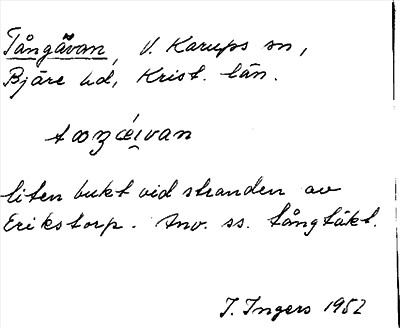 Tångävan, V. Karups sn,
Bjäre hd, Krist. län.
liten bukt vid stranden av
Erikstorp. Anv. ss. tångtäkt.
I. Ingers 1952